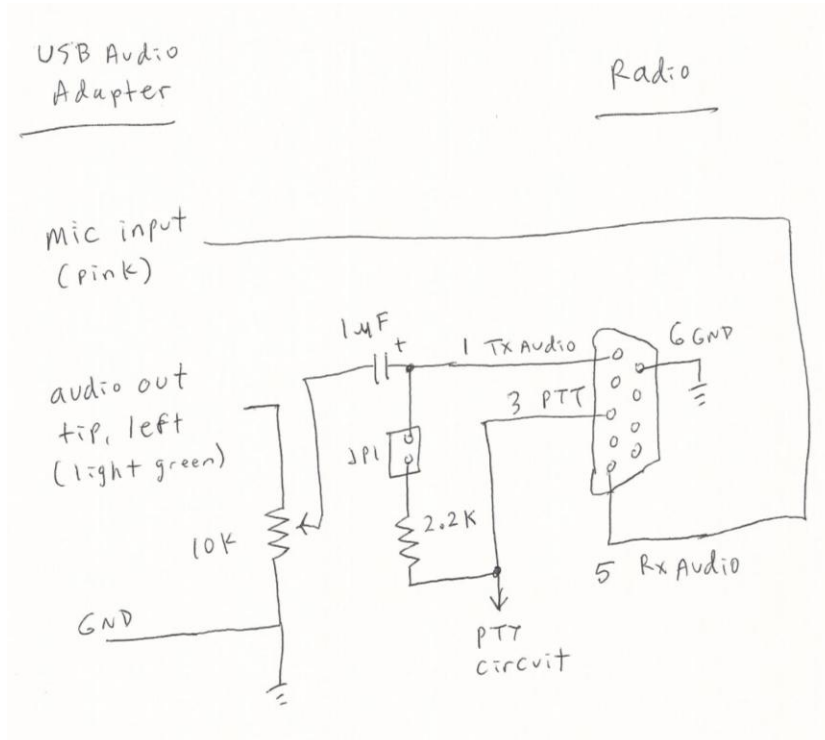 USB Audio
Adapter
Radio
mic input
(pink)
1 µF
+
1 Tx Audio
6 GND
audio out
tip, left
(light green)
3 PTT
JP1
10K
2.2K
5 Rx Audio
GND
PTT
circuit